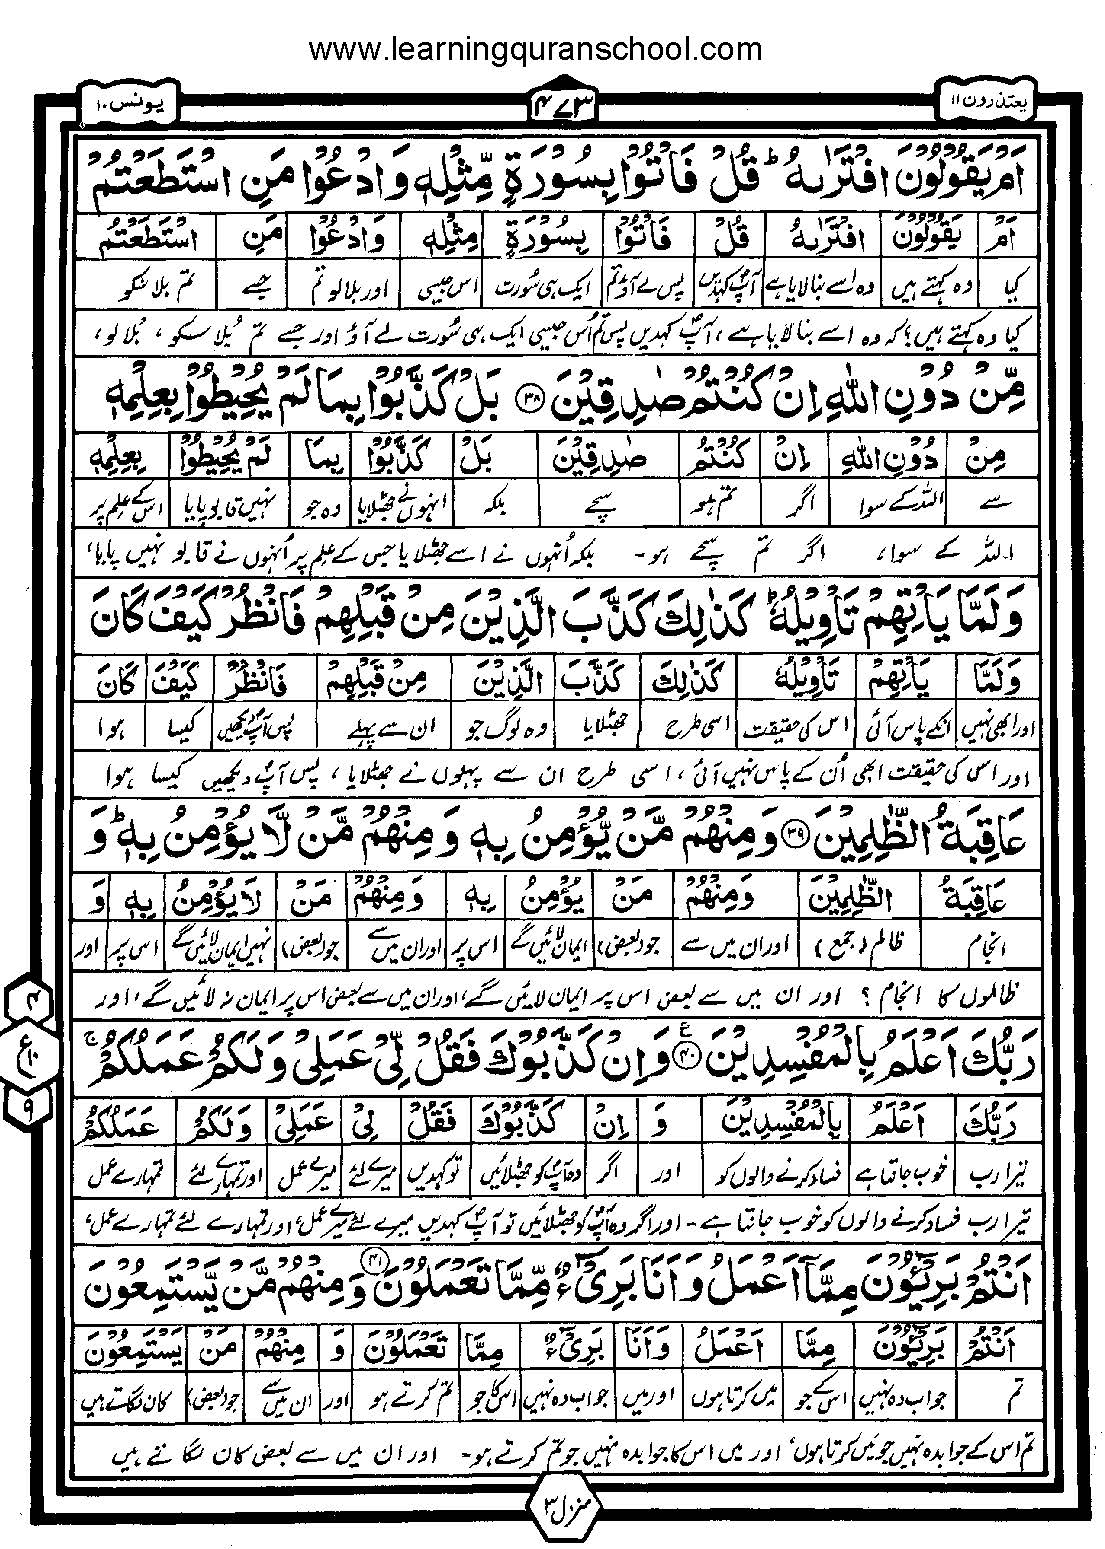 www.learningquranschool.com
یعتذرون ۱۱
۴۷۳
یونس ۱۰
اَمْ یَقُوْلُوْنَ افْتَرٰىهُ ؕ قُلْ فَاْتُوْا بِسُوْرَةٍ مِّثْلِهٖ وَادْعُوْا مَنِ اسْتَطَعْتُمْ
اَمْ یَقُوْلُوْنَ افْتَرٰىهُ قُلْ فَاْتُوْا بِسُوْرَةٍ مِثْلِهٖ وَادْعُوْا مَنِ اسْتَطَعْتُمْ
کیا وہ کہتے ہیں وہ اسے بنا لایا ہے آپ کہدیں پس لے آؤ تم ایک ہی سورت اس جیسی اور بلا لو تم جسے تم بلا سکو
کیا وہ کہتے ہیں؟ کہ وہ اسے بنا لایا ہے، آپ کہدیں پس تم اُس جیسی ایک ہی سُورت لے آؤ اور جسے تم بُلا سکو، بُلا لو،
مِّنْ دُوْنِ اللّٰهِ اِنْ كُنْتُمْ صٰدِقِیْنَ ۳۸ بَلْ كَذَّبُوْا بِمَا لَمْ یُحِیْطُوْا بِعِلْمِهٖ
مِنْ دُوْنِ اللّٰهِ اِنْ كُنْتُمْ صٰدِقِیْنَ بَلْ كَذَّبُوْا بِمَا لَمْ یُحِیْطُوْا بِعِلْمِهٖ
سے اللہ کے سوا اگر تم ہو سچے بلکہ انہوں نے جھٹلایا وہ جو نہیں قابو پایا اس کے علم پر
اللہ کے سوا، اگر تم سچے ہو۔ بلکہ اُنہوں نے اسے جھٹلایا جس کے علم پر اُنہوں نے قابو نہیں پایا،
وَلَمَّا یَاْتِهِمْ تَاْوِیْلُهٗ ؕ كَذٰلِكَ كَذَّبَ الَّذِیْنَ مِنْ قَبْلِهِمْ فَانْظُرْ كَیْفَ كَانَ
وَلَمَّا یَاْتِهِمْ تَاْوِیْلُهٗ كَذٰلِكَ كَذَّبَ الَّذِیْنَ مِنْ قَبْلِهِمْ فَانْظُرْ كَیْفَ كَانَ
اور ابھی نہیں انکے پاس آئی اس کی حقیقت اسی طرح جھٹلایا وہ لوگ جو ان سے پہلے پس آپ دیکھیں کیسا ہوا
اور اس کی حقیقت ابھی اُن کے پاس نہیں آئی، اسی طرح ان سے پہلوں نے جھٹلایا، پس آپ دیکھیں کیسا ہوا
عَاقِبَةُ الظّٰلِمِیْنَ ۳۹ وَمِنْهُمْ مَّنْ یُّؤْمِنُ بِهٖ وَمِنْهُمْ مَّنْ لَّا یُؤْمِنُ بِهٖ ؕ وَ
عَاقِبَةُ الظّٰلِمِیْنَ وَمِنْهُمْ مَنْ یُؤْمِنُ بِهٖ وَمِنْهُمْ مَنْ لَا یُؤْمِنُ بِهٖ وَ
انجام ظالم (جمع) اور ان میں سے جو (بعض) ایمان لائیں گے اس پر اور ان میں سے جو (بعض) نہیں ایمان لائیں گے اس پر اور
ظالموں کا انجام؟ اور ان میں سے بعض اس پر ایمان لائیں گے، اور ان میں سے بعض اس پر ایمان نہ لائیں گے، اور
۴
ع
۱۰
۹
رَبُّكَ اَعْلَمُ بِالْمُفْسِدِیْنَ ۴۰ ع وَاِنْ كَذَّبُوْكَ فَقُلْ لِّیْ عَمَلِیْ وَلَكُمْ عَمَلُكُمْ ۚ
رَبُّكَ اَعْلَمُ بِالْمُفْسِدِیْنَ وَ اِنْ كَذَّبُوْكَ فَقُلْ لِیْ عَمَلِیْ وَلَكُمْ عَمَلُكُمْ
تیرا رب خوب جانتا ہے فساد کرنے والوں کو اور اگر وہ آپ کو جھٹلائیں تو کہدیں میرے لئے میرے عمل اور تمہارے لئے تمہارے عمل
تیرا رب فساد کرنے والوں کو خوب جانتا ہے۔ اور اگر وہ آپ کو جھٹلائیں تو آپ کہدیں میرے لئے میرے عمل، اور تمہارے لئے تمہارے عمل،
اَنْتُمْ بَرِیْٓـُٔوْنَ مِمَّاۤ اَعْمَلُ وَاَنَا بَرِیْٓءٌ مِّمَّا تَعْمَلُوْنَ ۴۱ وَمِنْهُمْ مَّنْ یَّسْتَمِعُوْنَ
اَنْتُمْ بَرِیْٓـُٔوْنَ مِمَّا اَعْمَلُ وَاَنَا بَرِیْٓءٌ مِمَّا تَعْمَلُوْنَ وَ مِنْهُمْ مَنْ یَسْتَمِعُوْنَ
تم جواب دہ نہیں اس کے جو میں کرتا ہوں اور میں جواب دہ نہیں اس کا جو تم کرتے ہو اور ان میں سے جو (بعض) کان لگاتے ہیں
تم اس کے جوابدہ نہیں جو میں کرتا ہوں، اور میں اس کا جوابدہ نہیں جو تم کرتے ہو۔ اور ان میں سے بعض کان لگاتے ہیں
منزل ۳